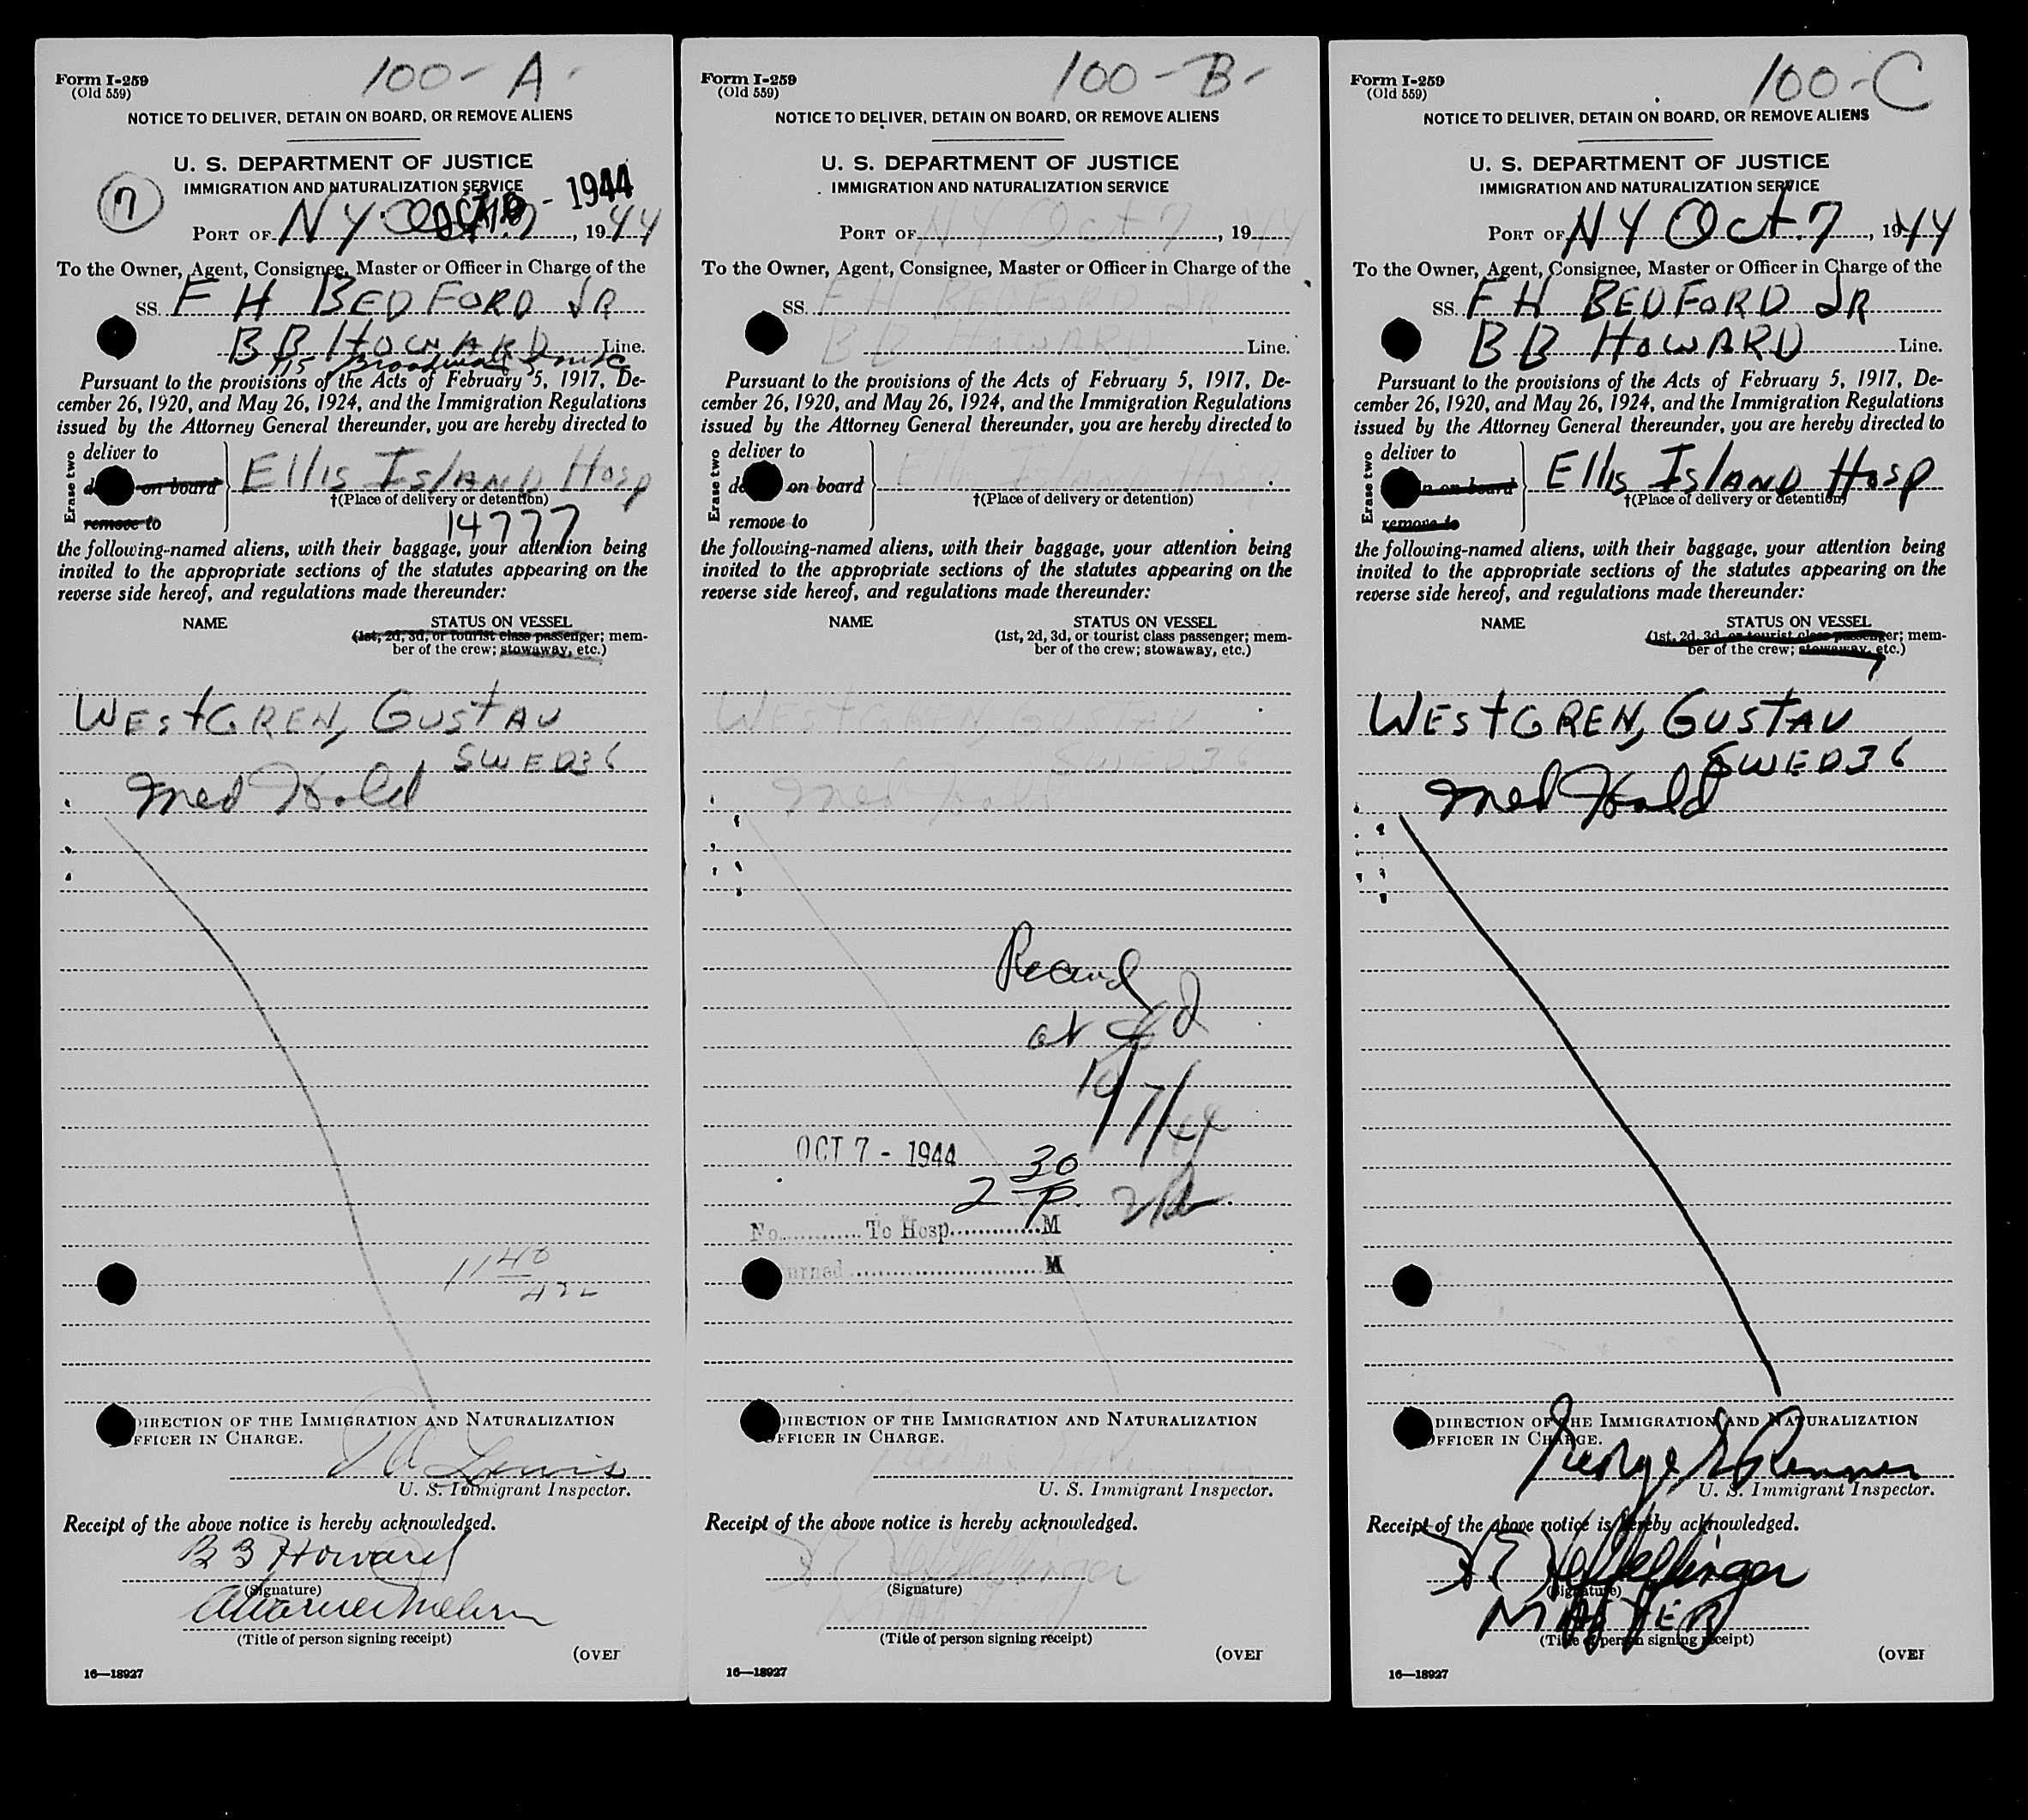 100- A-
Form I-259
(Old 559)
NOTICE TO DELIVER, DETAIN ON BOARD, OR REMOVE ALIENS
U. S. DEPARTMENT OF JUSTICE
IMMIGRATION AND NATURALIZATION SERVICE
7
1944
PORT OF NY Oct 7, 1944
To the Owner, Agent, Consignee, Master or Officer in Charge of the
SS. F H BEDFORD JR
BB HOWARD Line.
115 Broadway
Pursuant to the provisions of the Acts of February 5, 1917, De-
cember 26, 1920, and May 26, 1924, and the Immigration Regulations
issued by the Attorney General thereunder, you are hereby directed to
Erase two
deliver to
on board
Ellis Island Hosp
†(Place of delivery or detention)
remove to
14777
the following-named aliens, with their baggage, your attention being
invited to the appropriate sections of the statutes appearing on the
reverse side hereof, and regulations made thereunder:
NAME STATUS ON VESSEL
(1st, 2d, 3d, or tourist class passenger; mem-
ber of the crew; stowaway, etc.)
WESTGREN, GUSTAV
SWED 36
Med Hold
1140
DIRECTION OF THE IMMIGRATION AND NATURALIZATION
OFFICER IN CHARGE.
Lewis
U. S. Immigrant Inspector.
Receipt of the above notice is hereby acknowledged.
B B Howard
(Signature)
(Title of person signing receipt)
(OVER
16—18927
100-B-
Form I-259
(Old 559)
NOTICE TO DELIVER, DETAIN ON BOARD, OR REMOVE ALIENS
U. S. DEPARTMENT OF JUSTICE
IMMIGRATION AND NATURALIZATION SERVICE
PORT OF NY Oct 7, 1944
To the Owner, Agent, Consignee, Master or Officer in Charge of the
SS. F H BEDFORD JR
BB HOWARD Line.
Pursuant to the provisions of the Acts of February 5, 1917, De-
cember 26, 1920, and May 26, 1924, and the Immigration Regulations
issued by the Attorney General thereunder, you are hereby directed to
Erase two
deliver to
on board
Ellis Island Hosp
†(Place of delivery or detention)
remove to
the following-named aliens, with their baggage, your attention being
invited to the appropriate sections of the statutes appearing on the
reverse side hereof, and regulations made thereunder:
NAME STATUS ON VESSEL
(1st, 2d, 3d, or tourist class passenger; mem-
ber of the crew; stowaway, etc.)
WESTGREN, GUSTAV
SWED 36
Med Hold
at
10/7/44
OCT 7 - 1944
2 30 P.
No. To Hosp. M
M
DIRECTION OF THE IMMIGRATION AND NATURALIZATION
OFFICER IN CHARGE.
U. S. Immigrant Inspector.
Receipt of the above notice is hereby acknowledged.
(Signature)
(Title of person signing receipt)
(OVER
16—18927
100-C
Form I-259
(Old 559)
NOTICE TO DELIVER, DETAIN ON BOARD, OR REMOVE ALIENS
U. S. DEPARTMENT OF JUSTICE
IMMIGRATION AND NATURALIZATION SERVICE
PORT OF NY Oct. 7, 1944
To the Owner, Agent, Consignee, Master or Officer in Charge of the
SS. F H BEDFORD JR
BB HOWARD Line.
Pursuant to the provisions of the Acts of February 5, 1917, De-
cember 26, 1920, and May 26, 1924, and the Immigration Regulations
issued by the Attorney General thereunder, you are hereby directed to
Erase two
deliver to
on board
Ellis Island Hosp
†(Place of delivery or detention)
remove to
the following-named aliens, with their baggage, your attention being
invited to the appropriate sections of the statutes appearing on the
reverse side hereof, and regulations made thereunder:
NAME STATUS ON VESSEL
(1st, 2d, 3d, or tourist class passenger; mem-
ber of the crew; stowaway, etc.)
WESTGREN, GUSTAV
SWED 36
Med Hold
DIRECTION OF THE IMMIGRATION AND NATURALIZATION
OFFICER IN CHARGE.
George
U. S. Immigrant Inspector.
Receipt of the above notice is hereby acknowledged.
(Signature)
MASTER
(Title of person signing receipt)
(OVER
16—18927